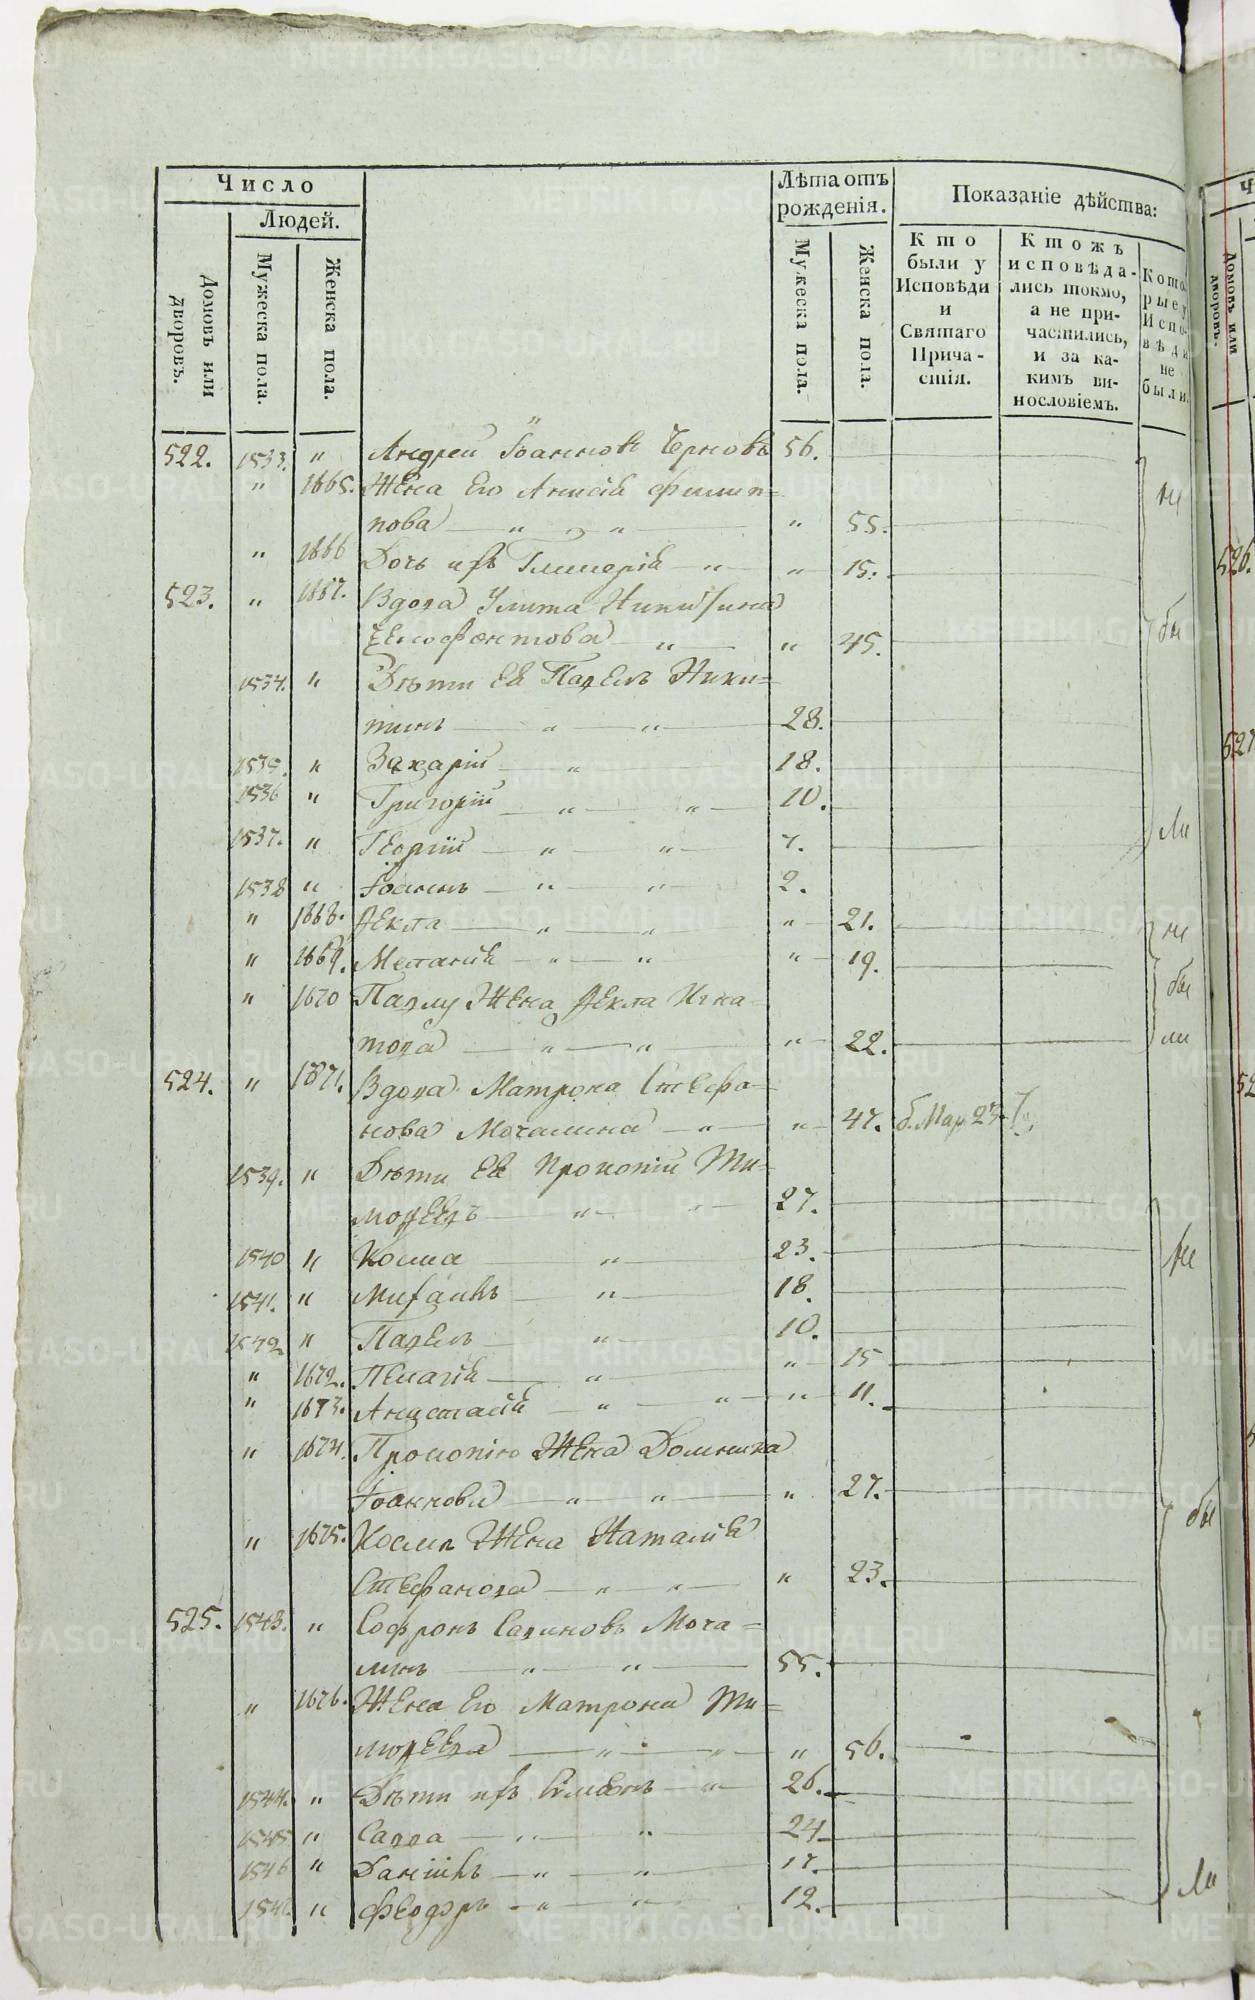 Число
Людей.
Домовъ или дворовъ.
Мужеска пола.
Женска пола.
Лѣта отъ рожденія.
Мужеска пола.
Женска пола.
Показаніе дѣйства:
Кто были у Исповѣди и Святаго Причастія.
Ктожъ исповѣдались токмо, а не причастились, и за какимъ винословіемъ.
Которые у Исповѣди не были.
522. 1533. " Андрей Іоанновъ Черновъ 56.
" 1665. Жена Его Анисія Филип=
пова " " " 55. не
" 1666 Дочь ихъ Гликерія " " 15.
523. " 1667. Вдова Улита Никитина
Ексофонтова " " 45. бы
1534. " Дѣти Ея Павелъ Ники=
тинъ " " 28.
1535. " Захарій " 18.
1536 " Григорій " " 10.
1537. " Георгій " " 7. ли
1538 " Іоаннъ " " 2.
" 1668. Ѳекла " " " 21. не
" 1669. Меланія " " " 19.
" 1670 Павлу Жена Ѳекла Игна= бы
това " " " 22. ли
524. " 1671. Вдова Матрона Стефа=
нова Мочалина " " 47. б. Мар. 23
1539. " Дѣти Ея Прокопій Ти=
моѳеевъ " " 27.
1540 " Косма " 23. не
1541. " Михаилъ " 18.
1542 " Павелъ " 10.
" 1672. Пелагія " " 15
" 1673. Анастасія " " " 11.
" 1674. Прокопію Жена Домника
Іоаннова " " " 27.
" 1675. Космѣ Жена Наталія бы
Стефанова " " " 23.
525. 1543. " Софронъ Савиновъ Моча=
линъ " " 55.
" 1676. Жена Его Матрона Ти=
моѳеева " " " 56.
1544. " Дѣти ихъ Симеонъ " 26.
1545 " Савва " " 24
1546 " Даніилъ " " 17.
1547. " Ѳеодоръ " " 12. ли
Домовъ или дворовъ.
526.
527
METRIKI.GASO-URAL.RU